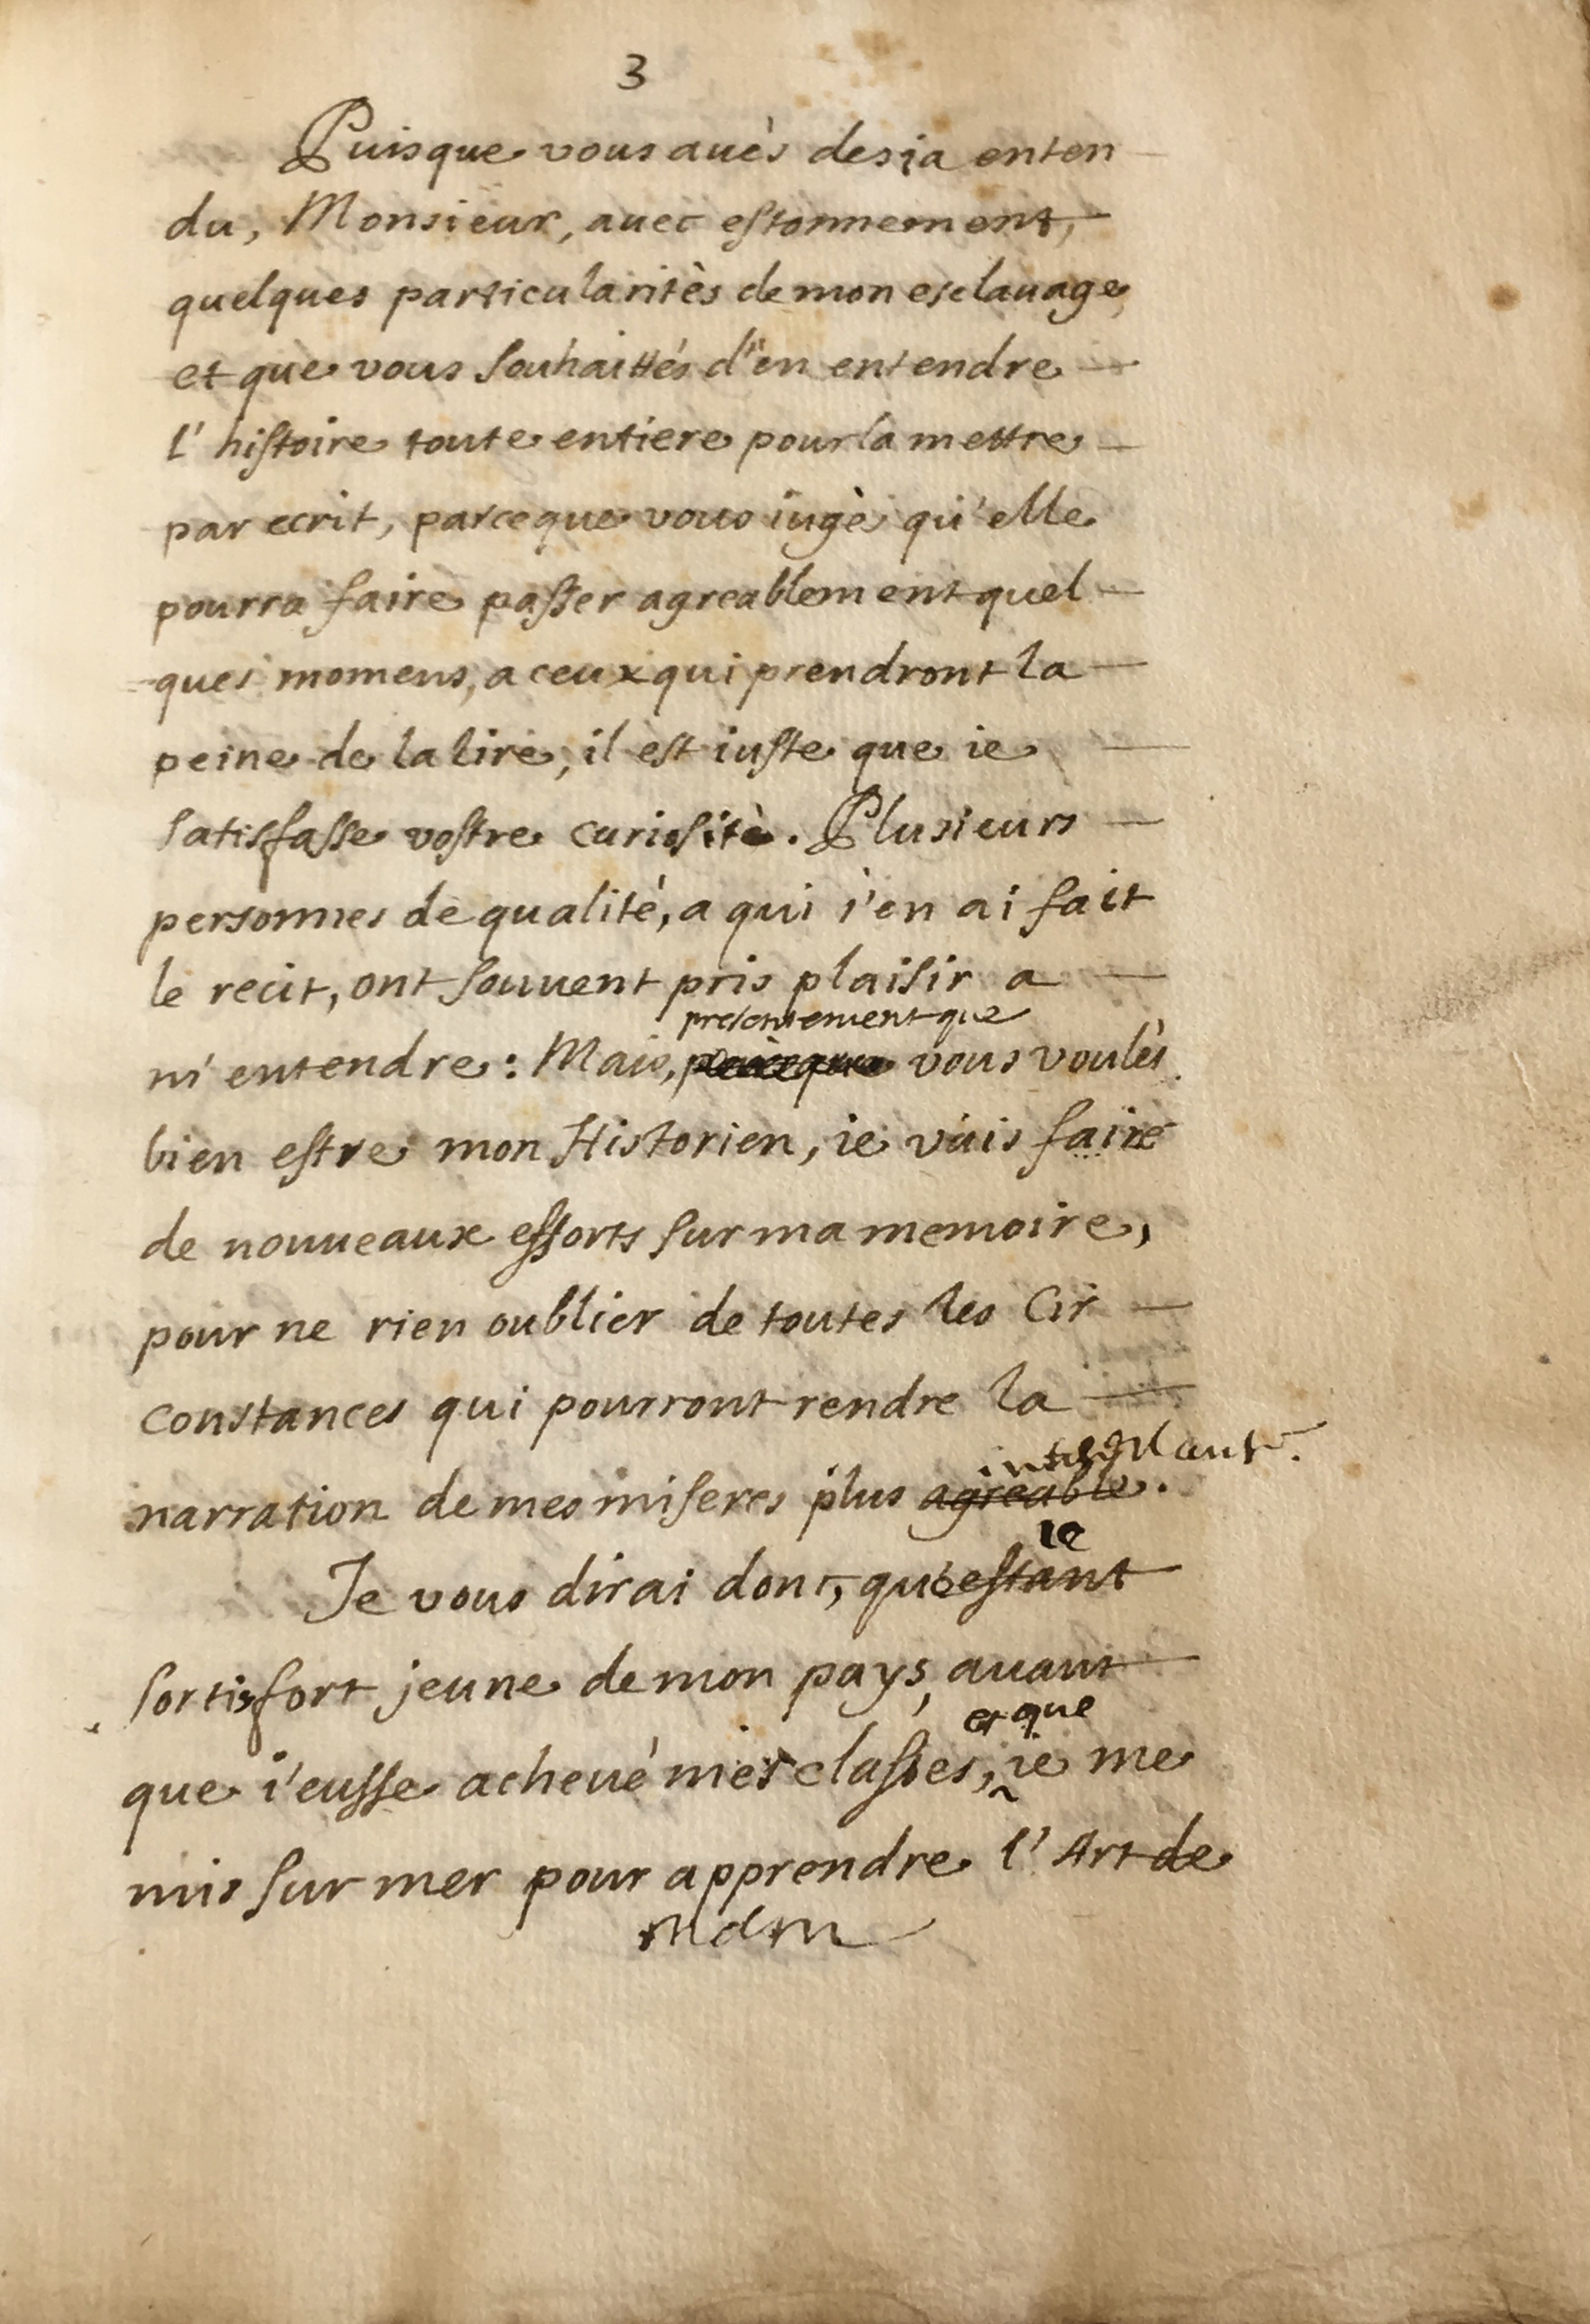 3
Puisque vous auès desia enten
du, Monsieur, auec estonnement,
quelques particularitès de mon esclauage,
et que vous souhaittés d'en entendre
l'histoire toute entiere pour la mettre
par ecrit, parceque vous iugès qu'elle
pourra faire passer agreablement quel-
ques momens, a ceux qui prendront la
peine de la lire, il est iuste que ie
satisfasse vostre curiosité. Plusieurs
personnes de qualité, a qui i'en ai fait
le recit, ont souuent pris plaisir a
presentement que
m'entendre: Mais, puisque vous voulès
bien estre mon Historien, ie vais faire
de nouueaux efforts sur ma memoire,
pour ne rien oublier de toutes les Cir
constances qui pourront rendre la
narration de mes miseres plus agreable.
ie
Je vous dirai donc, qu'estant
sortis fort jeune de mon pays, auant
et que
que i'eusse acheué mes classes, ie me
mis sur mer pour apprendre l'Art de
MdM